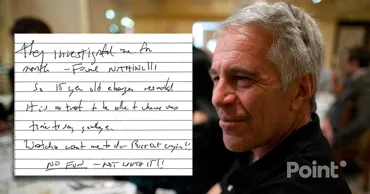 They investigated me for
month - Found NOTHING!!!
So 15 year old charges
It is a to be able to choose
time to say
Watcha want me to do - out
NO FUN - NOT WORTH IT!!
Point